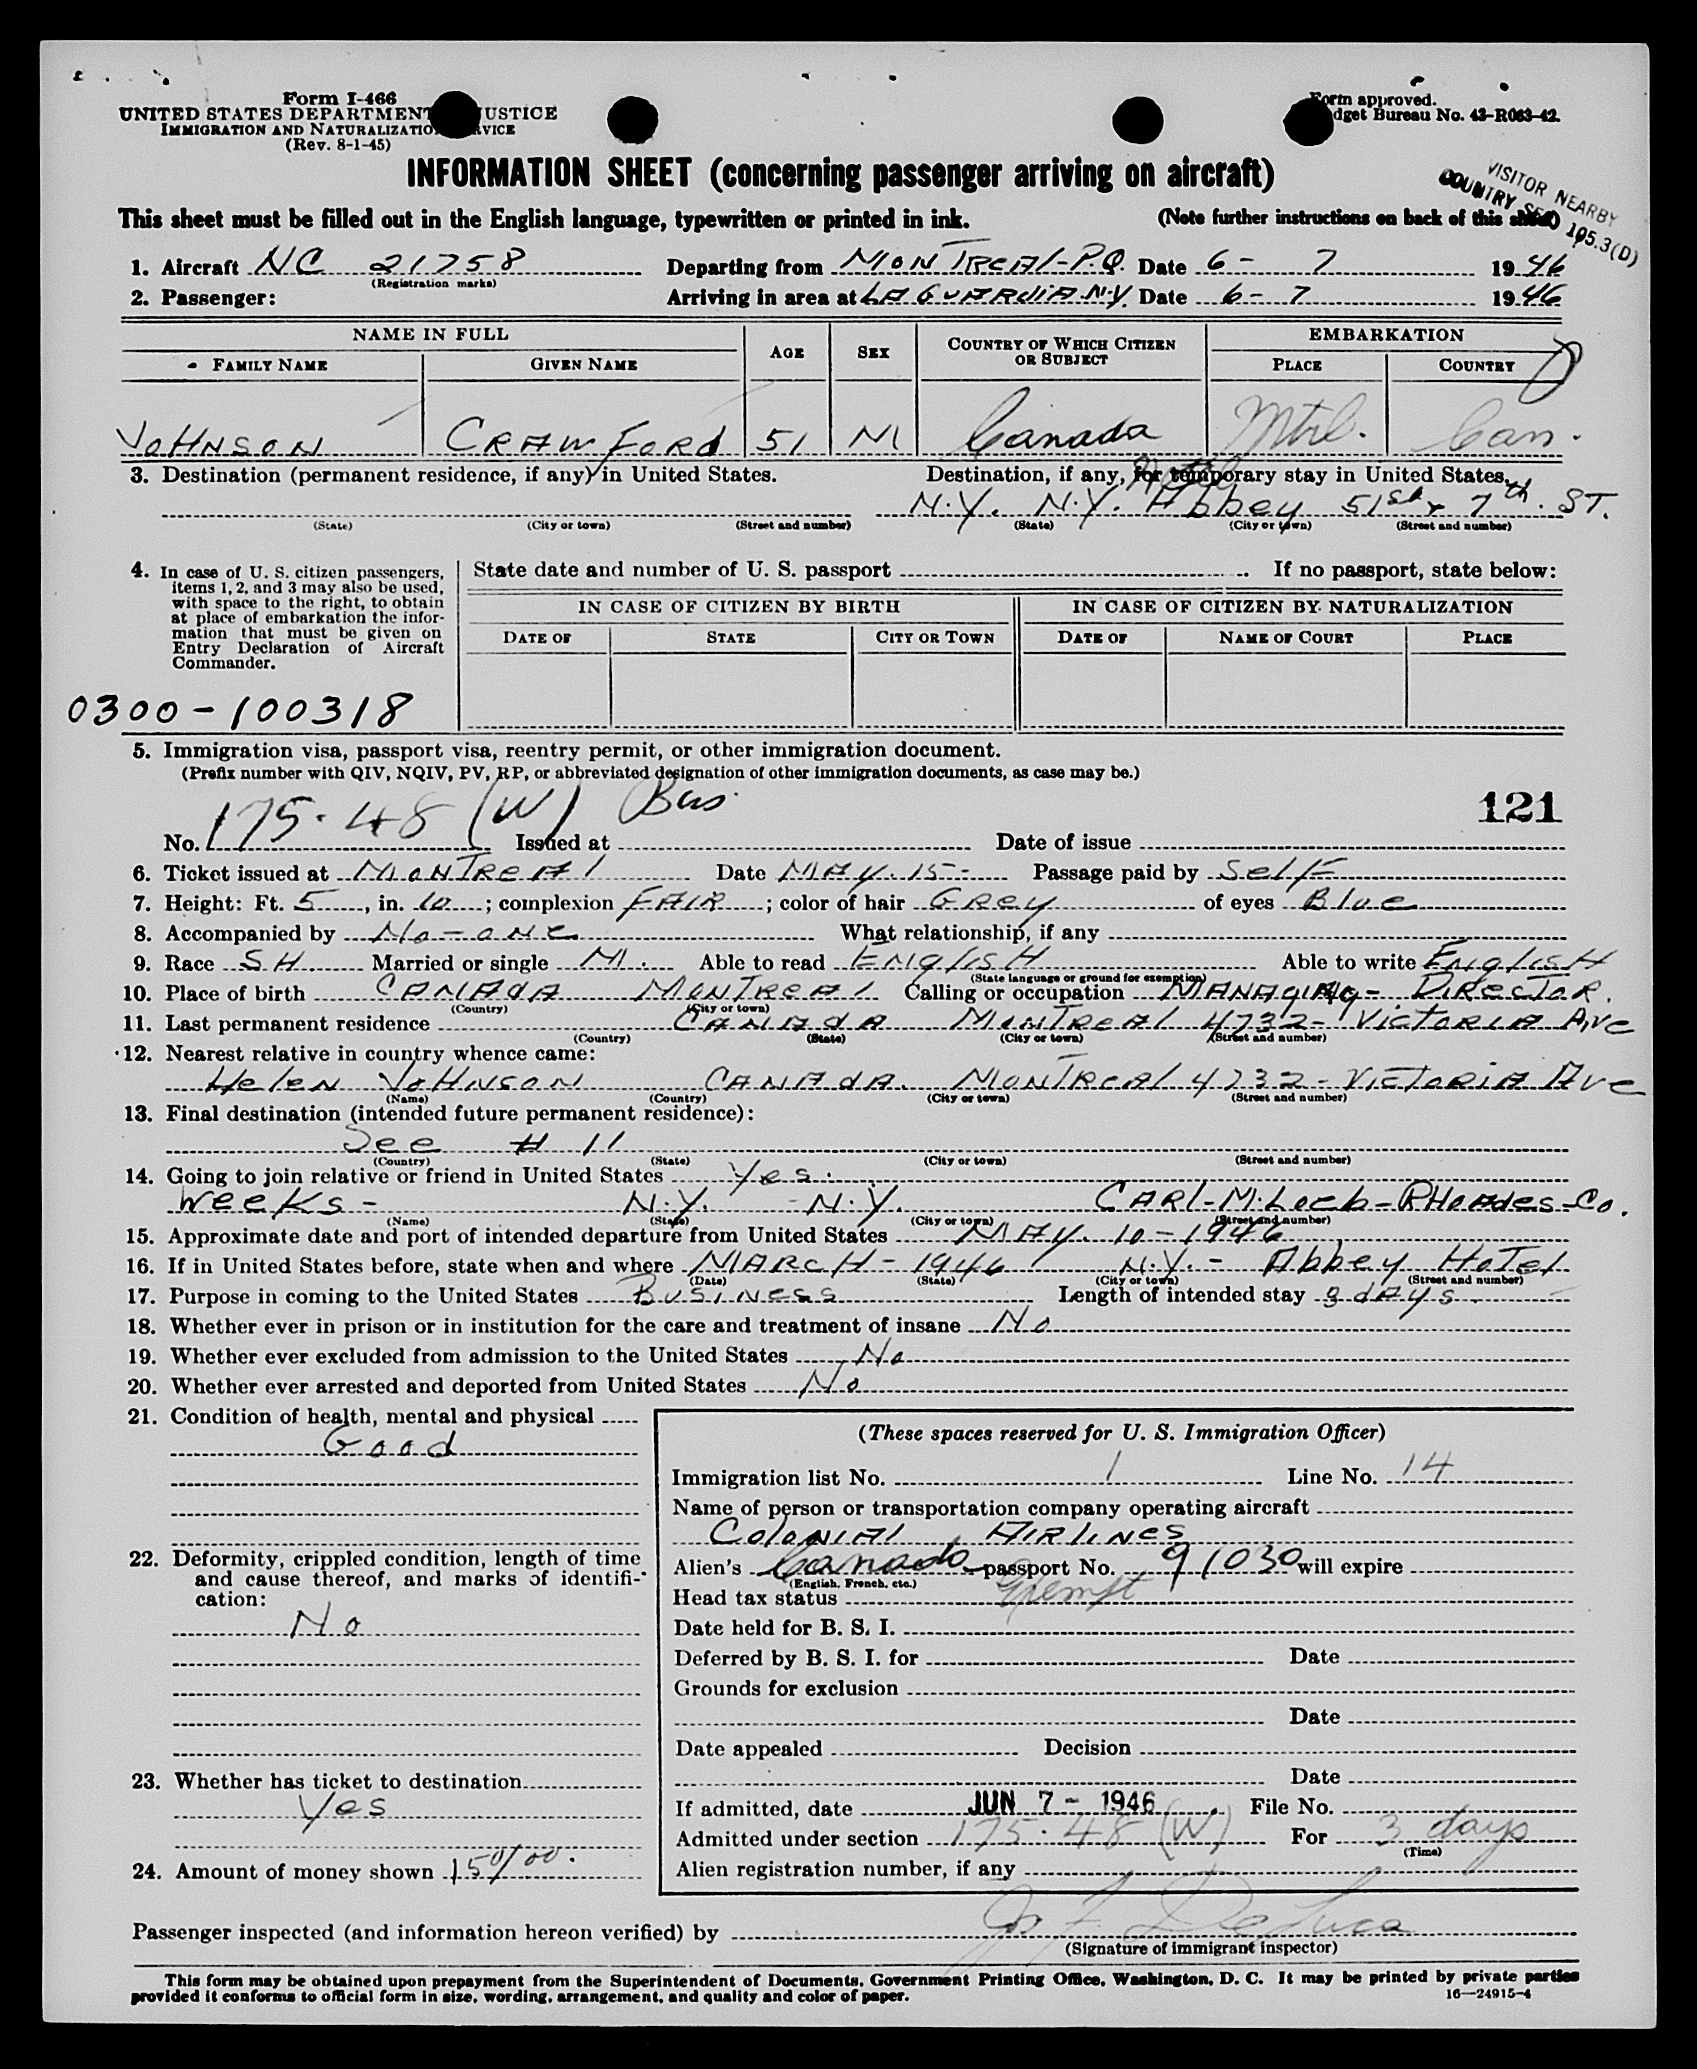 Form I-466
UNITED STATES DEPARTMENT JUSTICE
IMMIGRATION AND NATURALIZATION SERVICE
(Rev. 8-1-45)
Form approved.
Budget Bureau No. 43-R063-42.
INFORMATION SHEET (concerning passenger arriving on aircraft)
VISITOR NEARBY
COUNTRY SEC 195.3(D)
This sheet must be filled out in the English language, typewritten or printed in ink. (Note further instructions on back of this sheet)
1. Aircraft NC 21758 Departing from MONTREAL-P.Q. Date 6- 7 1946
(Registration marks)
2. Passenger: Arriving in area at LAGUARDIA-N.Y. Date 6- 7 1946
NAME IN FULL AGE SEX COUNTRY OF WHICH CITIZEN OR SUBJECT EMBARKATION
FAMILY NAME GIVEN NAME PLACE COUNTRY
JOHNSON CRAWFORD 51 M Canada Mtrl. Can.
3. Destination (permanent residence, if any) in United States. Destination, if any, for temporary stay in United States.
Hotel
N.Y. N.Y. Abbey 51st 7th ST.
(State) (City or town) (Street and number) (State) (City or town) (Street and number)
4. In case of U. S. citizen passengers, items 1, 2, and 3 may also be used, with space to the right, to obtain at place of embarkation the information that must be given on Entry Declaration of Aircraft Commander.
State date and number of U. S. passport If no passport, state below:
IN CASE OF CITIZEN BY BIRTH IN CASE OF CITIZEN BY NATURALIZATION
DATE OF STATE CITY OR TOWN DATE OF NAME OF COURT PLACE
0300-100318
5. Immigration visa, passport visa, reentry permit, or other immigration document.
(Prefix number with QIV, NQIV, PV, RP, or abbreviated designation of other immigration documents, as case may be.)
121
No. 175.48 (W) Bus. Issued at Date of issue
6. Ticket issued at MONTREAL Date MAY.15- Passage paid by Self
7. Height: Ft. 5, in. 10; complexion FAIR; color of hair GREY of eyes Blue
8. Accompanied by No-one What relationship, if any
9. Race SH. Married or single M. Able to read ENglISH Able to write ENglISH
(State language or ground for exemption)
10. Place of birth CANADA MONTREAL Calling or occupation MANAgINg- DIRECTOR.
(Country) (City or town)
11. Last permanent residence CANADA MONTREAL 4732-VICTORIA AVe
(Country) (State) (City or town) (Street and number)
12. Nearest relative in country whence came:
HeleN JOHNSON CANADA. MONTREAL 4732-VICTORIA AVe
(Name) (Country) (City or town) (Street and number)
13. Final destination (intended future permanent residence):
See # 11
(Country) (State) (City or town) (Street and number)
14. Going to join relative or friend in United States Yes.
WeeKs- N.Y. -N.Y. CARl-M.Loeb-RHOADes-Co.
(Name) (State) (City or town) (Street and number)
15. Approximate date and port of intended departure from United States MAY. 10-1946
16. If in United States before, state when and where MARCH-1946 N.Y.- Abbey HoTel
(Date) (State) (City or town) (Street and number)
17. Purpose in coming to the United States BUSINESS Length of intended stay 3 dAys.
18. Whether ever in prison or in institution for the care and treatment of insane No
19. Whether ever excluded from admission to the United States No
20. Whether ever arrested and deported from United States No
21. Condition of health, mental and physical
Good
22. Deformity, crippled condition, length of time and cause thereof, and marks of identification:
No
23. Whether has ticket to destination
Yes
24. Amount of money shown 150/00.
(These spaces reserved for U. S. Immigration Officer)
Immigration list No. 1 Line No. 14
Name of person or transportation company operating aircraft
COlONIAl AIRlINes
Alien's Canada passport No. 91030 will expire
(English, French, etc.)
Head tax status Exempt
Date held for B. S. I.
Deferred by B. S. I. for Date
Grounds for exclusion
Date
Date appealed Decision
Date
If admitted, date JUN 7 - 1946 File No.
Admitted under section 175.48 (W) For 3 days
(Time)
Alien registration number, if any
Passenger inspected (and information hereon verified) by DeLuca
(Signature of immigrant inspector)
This form may be obtained upon prepayment from the Superintendent of Documents, Government Printing Office, Washington, D. C. It may be printed by private parties
provided it conforms to official form in size, wording, arrangement, and quality and color of paper.
16—24915-4